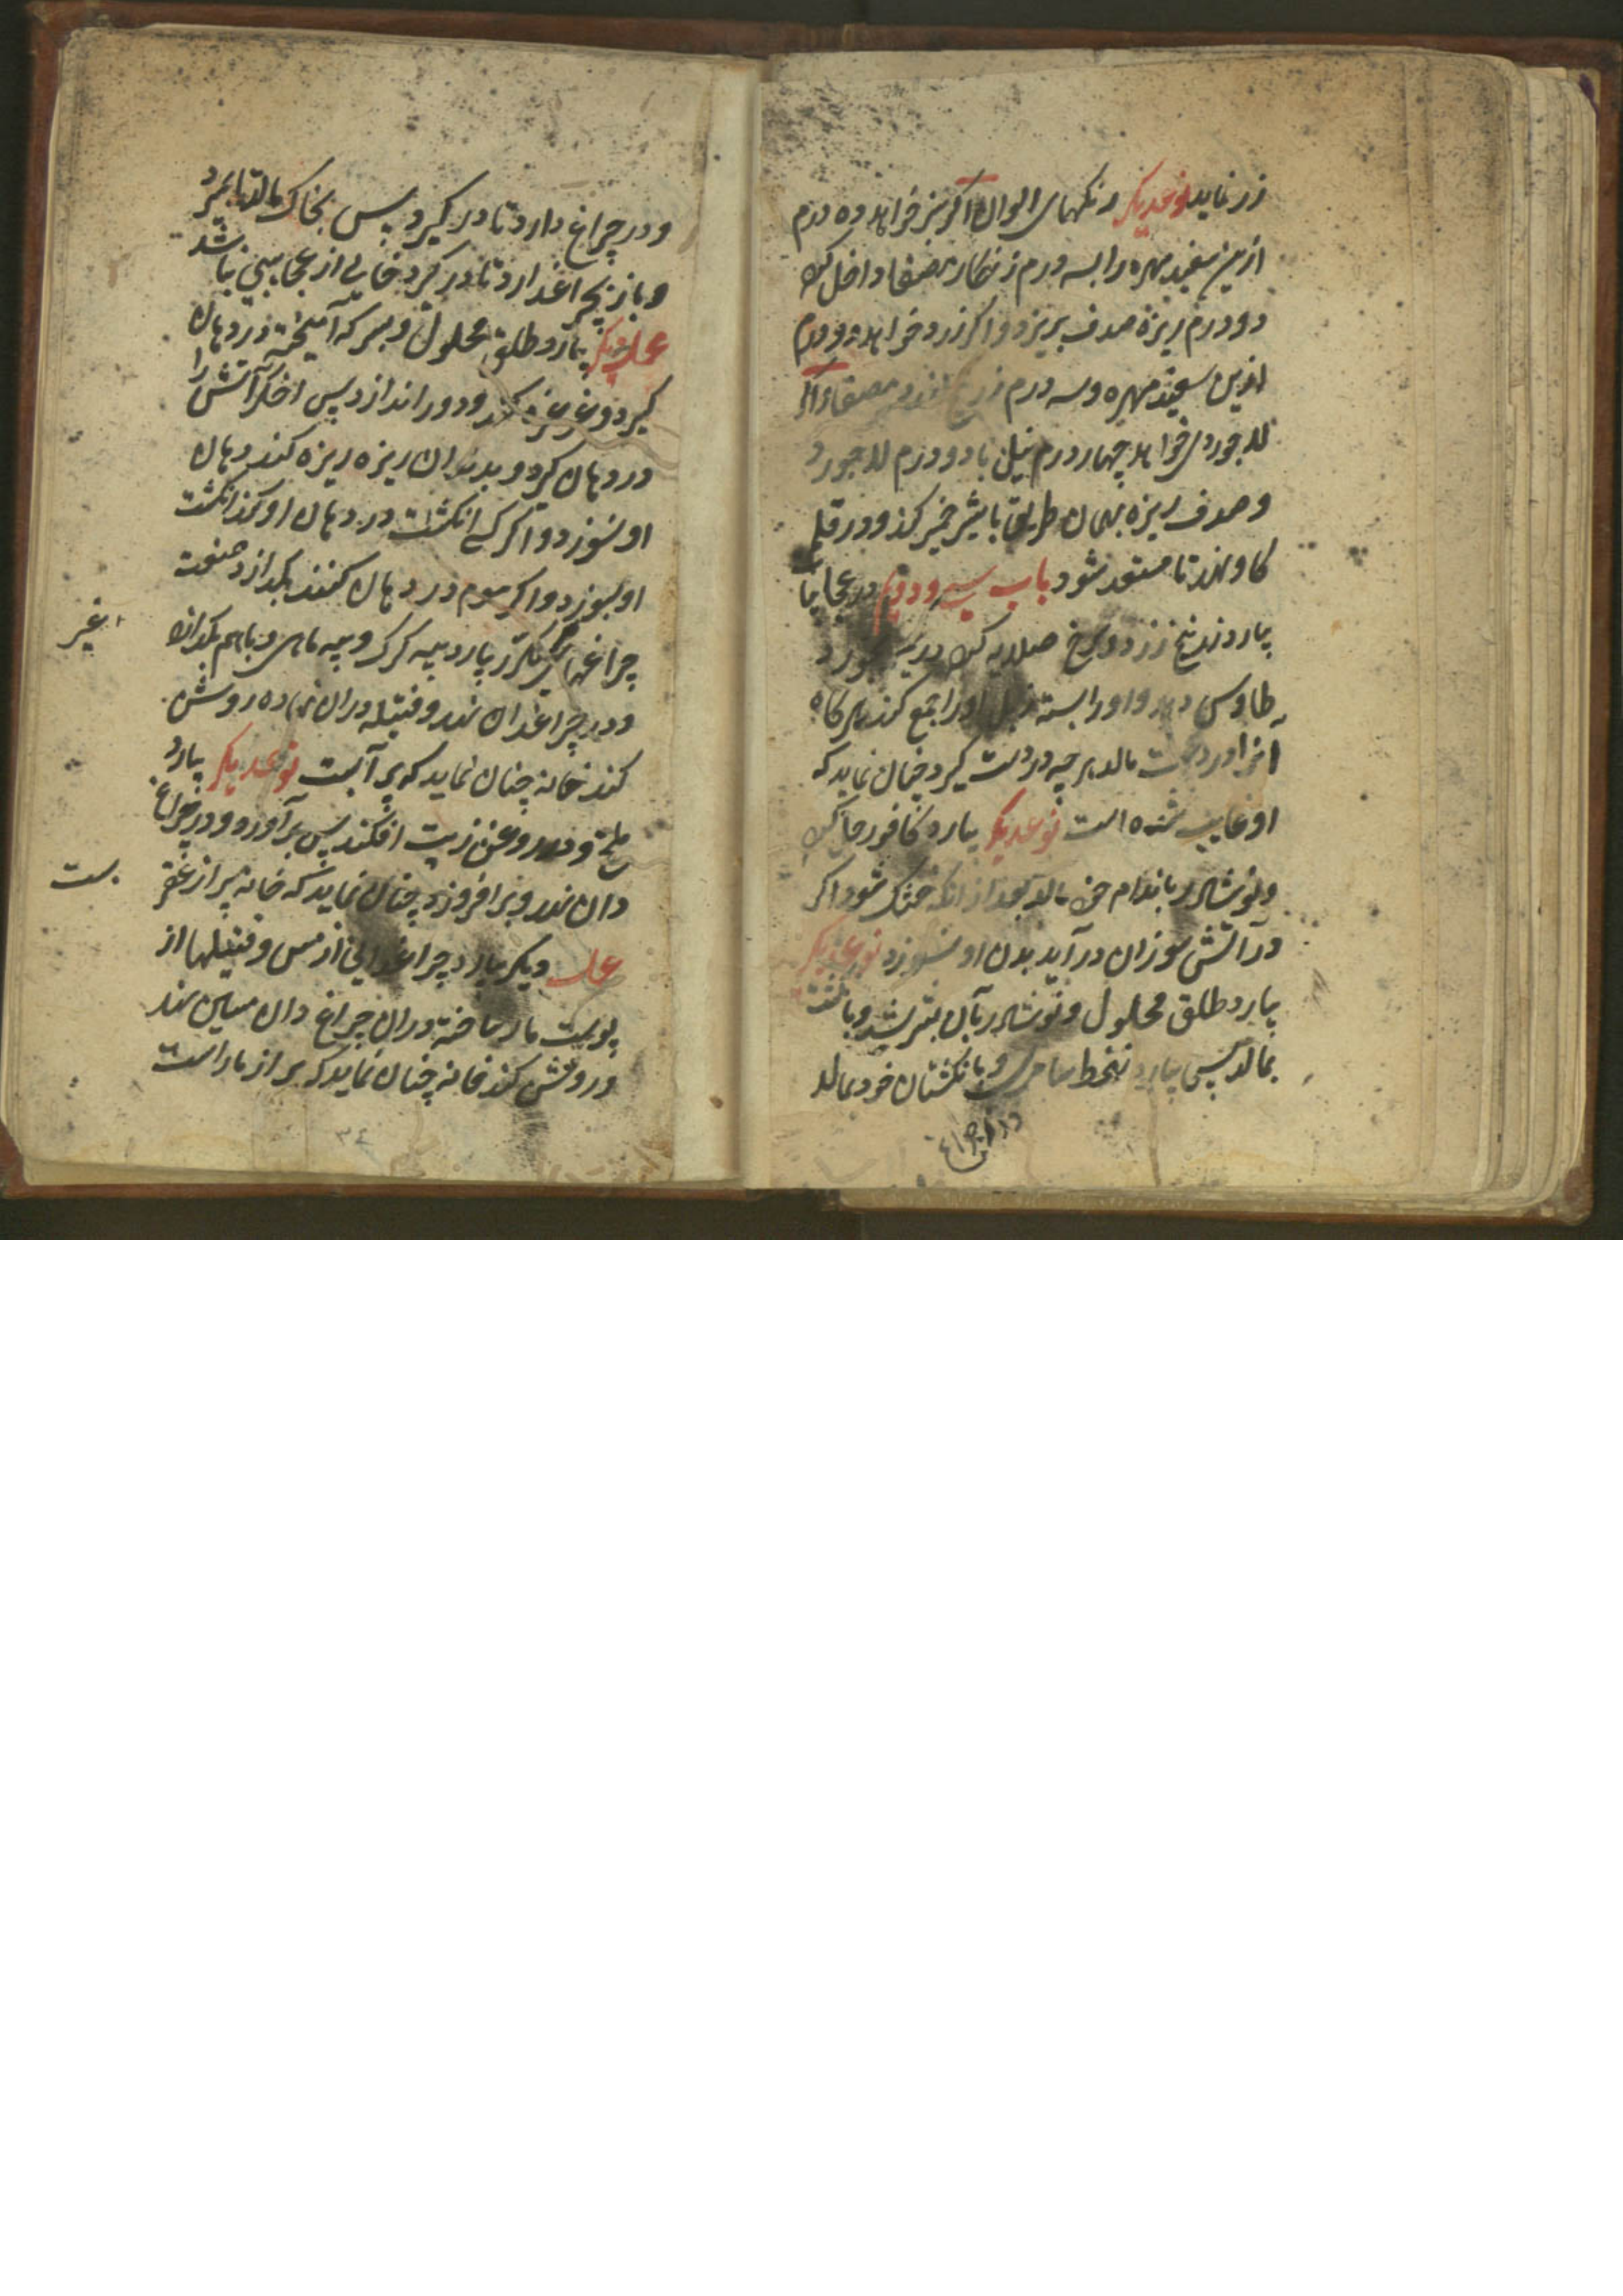 زر نماید نوعدیکر رنکهای الوان اکر سبز خواهد ده درم
ازین سفید مهره را بسه درم زنکار مصفا داخل کند
دو درم ریزه صدف بریزد و اکر زرد خواهد دو درم
ازین سفید مهره و سه درم زرنیخ مصفا و اکر
لاجوردی خواهد چهار درم نیل با دو درم لاجورد
و صدف ریزه بهمان طریق با شیر خمیر کند و در
کاو نهد تا منعقد شود باب سی و دویم در عجایبات
بیارد زرنیخ زرد و سرخ صلایه کند
طاوس دهد و او را بسته زبل او را جمع کند هر کاه
انرا در دست مالد هر چه در دست کیرد چنان نماید که
او غایب شده است نوعدیکر بیارد کافور
و نوشادر باندام خود مالد بعد از انکه خشک شود اکر
در آتش سوزان در آید بدن او نسوزد نوعدیکر
بیارد طلق محلول و نوشادر بآن
بمالد پس بیارد و بانکشتان خود بمالد
و در چراغ دارد تا در کیرد پس بخاک مالد تا بمیرد
و باز بچراغ دارد تا در کیرد خالی از عجایبی نباشد
عمل دیکر بیارد طلق محلول و بسرکه آمیخته در دهان
کیرد و غرغره کند و دور اندازد پس اخکر آتش را
در دهان کیرد و بدندان ریزه ریزه کند دهان
او نسوزد و اکر کسی انکشت در دهان او کند انکشت
او بسوزد و اکر موم در دهان کنند بکدازد صنعت
چراغهای مکرر بیارد پیه کرک و پیه ماهی و باهم بکدازد
و در چراغدان نهد و فتیله دران نهاده روشن
کند خانه چنان نماید که پر آبست نوعدیکر بیارد
و در روغن زیت افکند پس برآورد و در چراغ
دان نهد و برافروزد چنان نماید که خانه پر از عقرب
ست
عمل دیکر بیارد چراغدانی از مس و فتیلها از
پوست مار ساخته دران چراغ دان مسین نهد
و روشن کند خانه چنان نماید که پر از مار است
۳٤